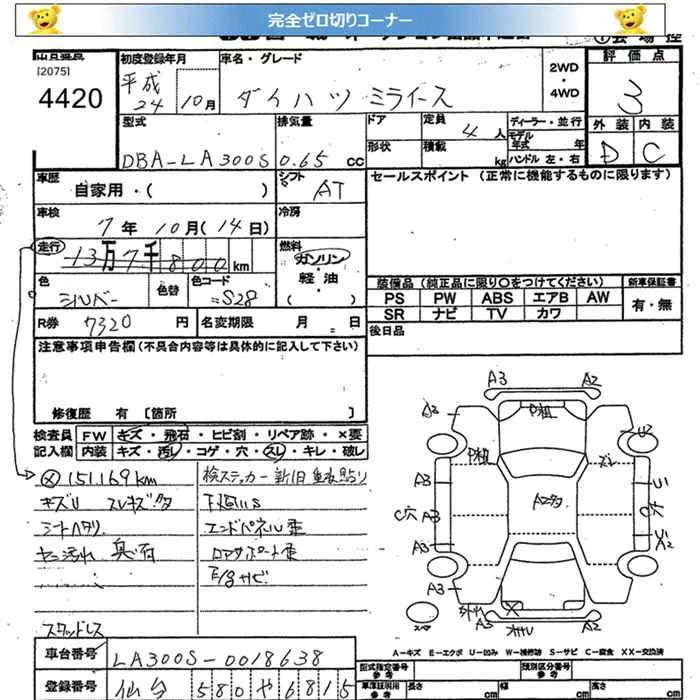 完全ゼロ切りコーナー
[2075]
4420
初度登録年月
平成
24 10月
車名・グレード
ダイハツ ミライース
2WD
・
4WD
評価点
3
外装 内装
D C
型式
DBA-LA300S
排気量
0.65 cc
ドア
定員
4人
形状
積載
kg
ディーラー・並行
モデル
年式 年
ハンドル 左・右
車歴
自家用・( )
シフト
AT
セールスポイント (正常に機能するものに限ります)
車検
7年 10月(14日)
冷房
走行
13万7千800km
燃料
ガソリン
・
軽油
( )
色
シルバー
色替
色コード
S28
装備品(純正品に限り○をつけてください)
PS PW ABS エアB AW
SR ナビ TV カワ
新車保証書
有・無
R券 7320 円
名変期限 月 日
後日品
注意事項申告欄(不具合内容等は具体的に記入して下さい)
修復歴 有 [箇所 ]
検査員
記入欄
FW キズ・飛石・ヒビ割・リペア跡・×要
内装 キズ・汚レ・コゲ・穴・スレ・キレ・破レ
151,169km
キズU スレキズ多
シートヘタリ
ヤニ汚れ 臭石
スタッドレス
検ステッカー新旧重ね貼り
エンドパネル歪
下回サビ
A3 A2
A3 U
P粗
P粗
A3 U
C穴 A3
Aキズ多
C穴
A3
A3 A3
外れ
A3
A2
A-キズ E-エクボ U-凹み W-補修跡 S-サビ C-腐食 XX-交換済
車台番号 LA300S-0018638
登録番号 仙台 580 や 6815
型式指定番号
参考
類別区分番号
参考
車庫証明用
参考
長さ cm
幅 cm
高さ cm